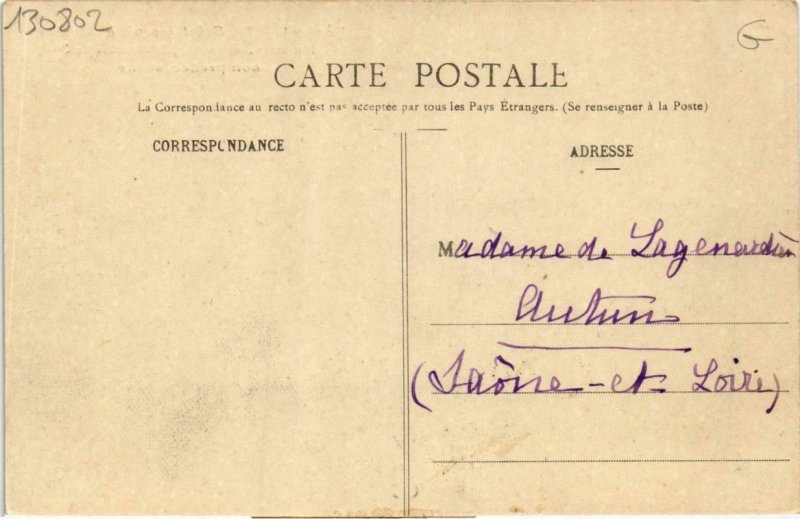 130802
G
CARTE POSTALE
La Correspondance au recto n'est pas acceptée par tous les Pays Étrangers. (Se renseigner à la Poste)
CORRESPONDANCE
ADRESSE
Madame de Lagenardière
Autun
(Saône-et-Loire)